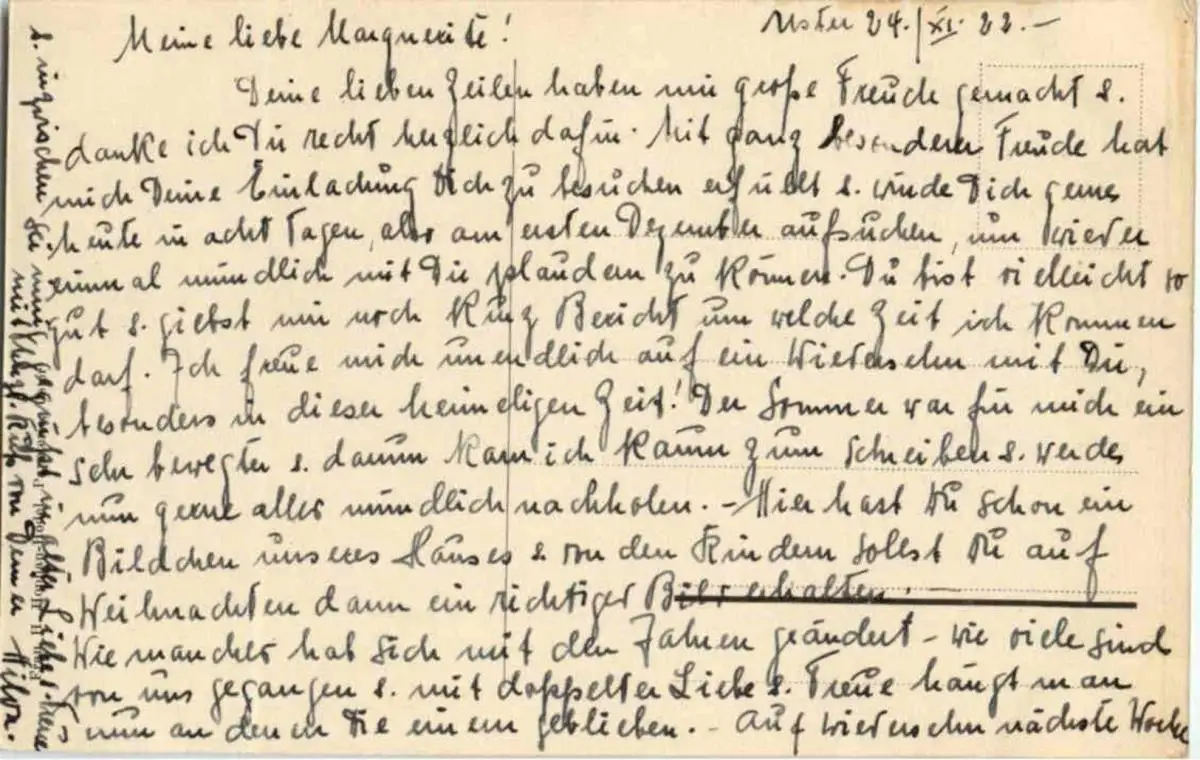 Uster 24./XI. 22. —
Meine liebe Marguerite!
Deine lieben Zeilen haben mir große Freude gemacht s.
danke ich Dir recht herzlich dafür. Mit ganz besonderer Freude hat
mich Deine Einladung Dich zu besuchen erfüllt s. würde Dich gerne
heute in acht Tagen, also am ersten Dezember aufsuchen, um wieder
einmal mündlich mit Dir plaudern zu können. Du bist vielleicht so
gut s. giebst mir noch kurz Bericht um welche Zeit ich kommen
darf. Ich freue mich unendlich auf ein Wiedersehn mit Dir,
besonders in dieser heimeligen Zeit! Der Sommer war für mich ein
sehr bewegter s. darum kam ich kaum zum Schreiben s. werde
nun gerne alles mündlich nachholen. — Hier hast Du schon ein
Bildchen unseres Hauses s. von den Kindern sollst Du auf
Weihnachten dann ein richtiges Bild erhalten. —
Wie manches hat sich mit den Jahren geändert — wie viele sind
von uns gegangen s. mit doppelter Liebe s. Treue hängt man
nun an denen die einem geblieben. — Auf wiedersehn nächste Woche
s. inzwischen sei innig gegrüsst, in alter Liebe s. Treue
mit von Deiner